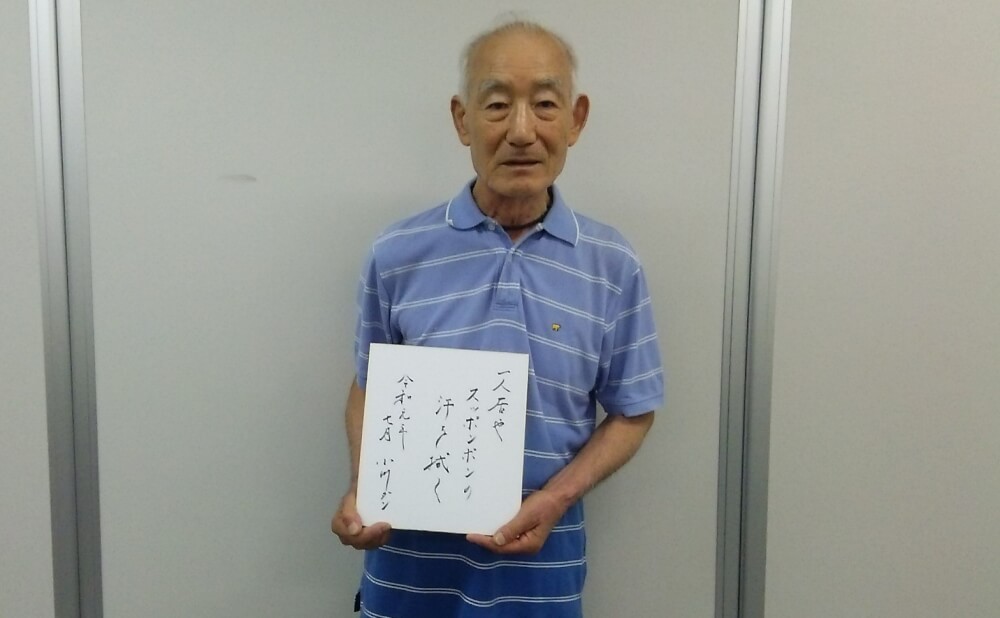 一人居や
スッポンポンの
汗を拭く
令和元年
七月 小川ガン